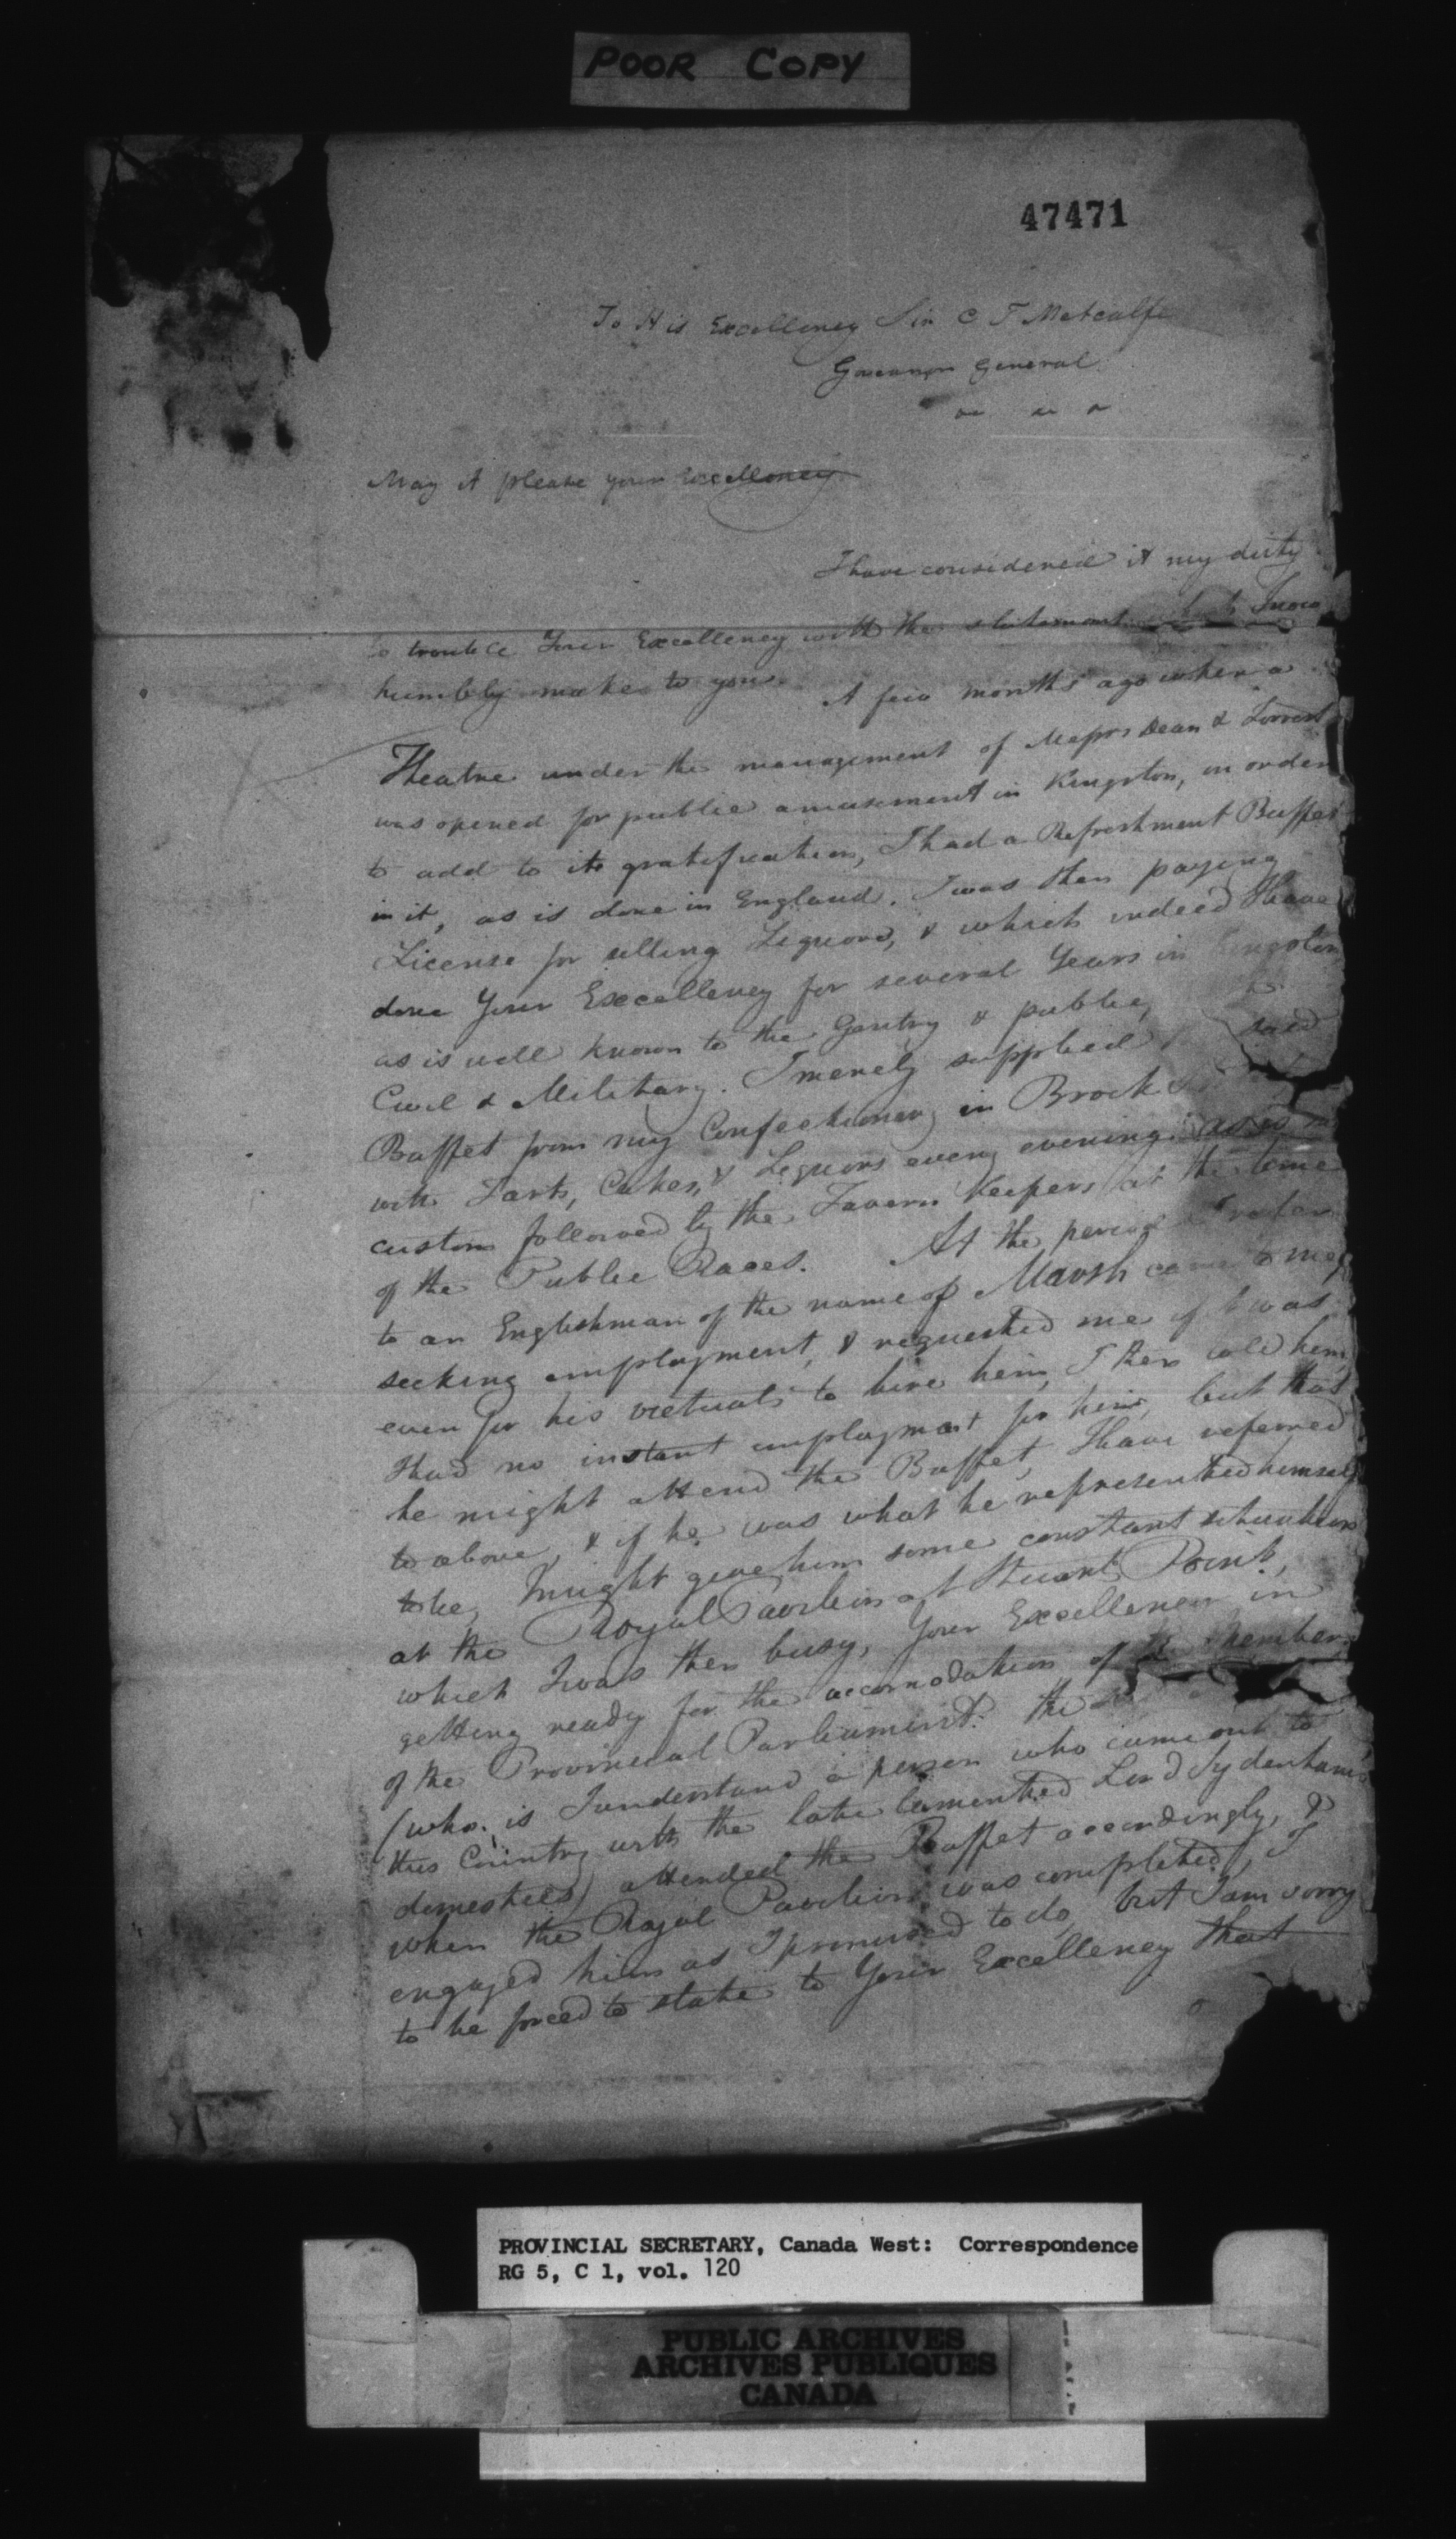 POOR COPY
47471
To His Excellency Sir C T Metcalfe
Governor General
May it please your Excellency
I have considered it my duty
to trouble Your Excellency with the statement which I now
humbly make to you. A few months ago when a
Theatre under the management of Messrs Dean & Forrest
was opened for public amusement in Kingston, in order
to add to its gratification, I had a Refreshment Buffet
in it, as is done in England. I was then paying
License for selling Liquors, & which indeed I have
done Your Excellency for several Years in Kingston
as is well known to the Gentry & public,
Civil & Military. I merely supplied said
Buffet from my Confectionery in Brock
with Tarts, Cakes, & Liquors every evening
custom followed by the Tavern Keepers at the time
of the Public Races. At the period I refer
to an Englishman of the name of Marsh came to me
seeking employment, & requested me if it was
even for his victuals to hire him, I then told him
I had no instant employment for him, but that
he might attend the Buffet, I have referred
to above, & if he was what he represented himself
to be, I might give him some constant situation
at the Royal Pavilion at Stuart Point,
which I was then busy, Your Excellency in
getting ready for the accomodation of the Members
of the Provincial Parliament. the
(who is I understand a person who came out to
this Country with the late lamented Lord Sydenham's
domestics) attended the Buffet accordingly, &
when the Royal Pavilion was completed, I
engaged him as I promised to do, but I am sorry
to be forced to state to Your Excellency that
PROVINCIAL SECRETARY, Canada West: Correspondence
RG 5, C 1, vol. 120
PUBLIC ARCHIVES
ARCHIVES PUBLIQUES
CANADA